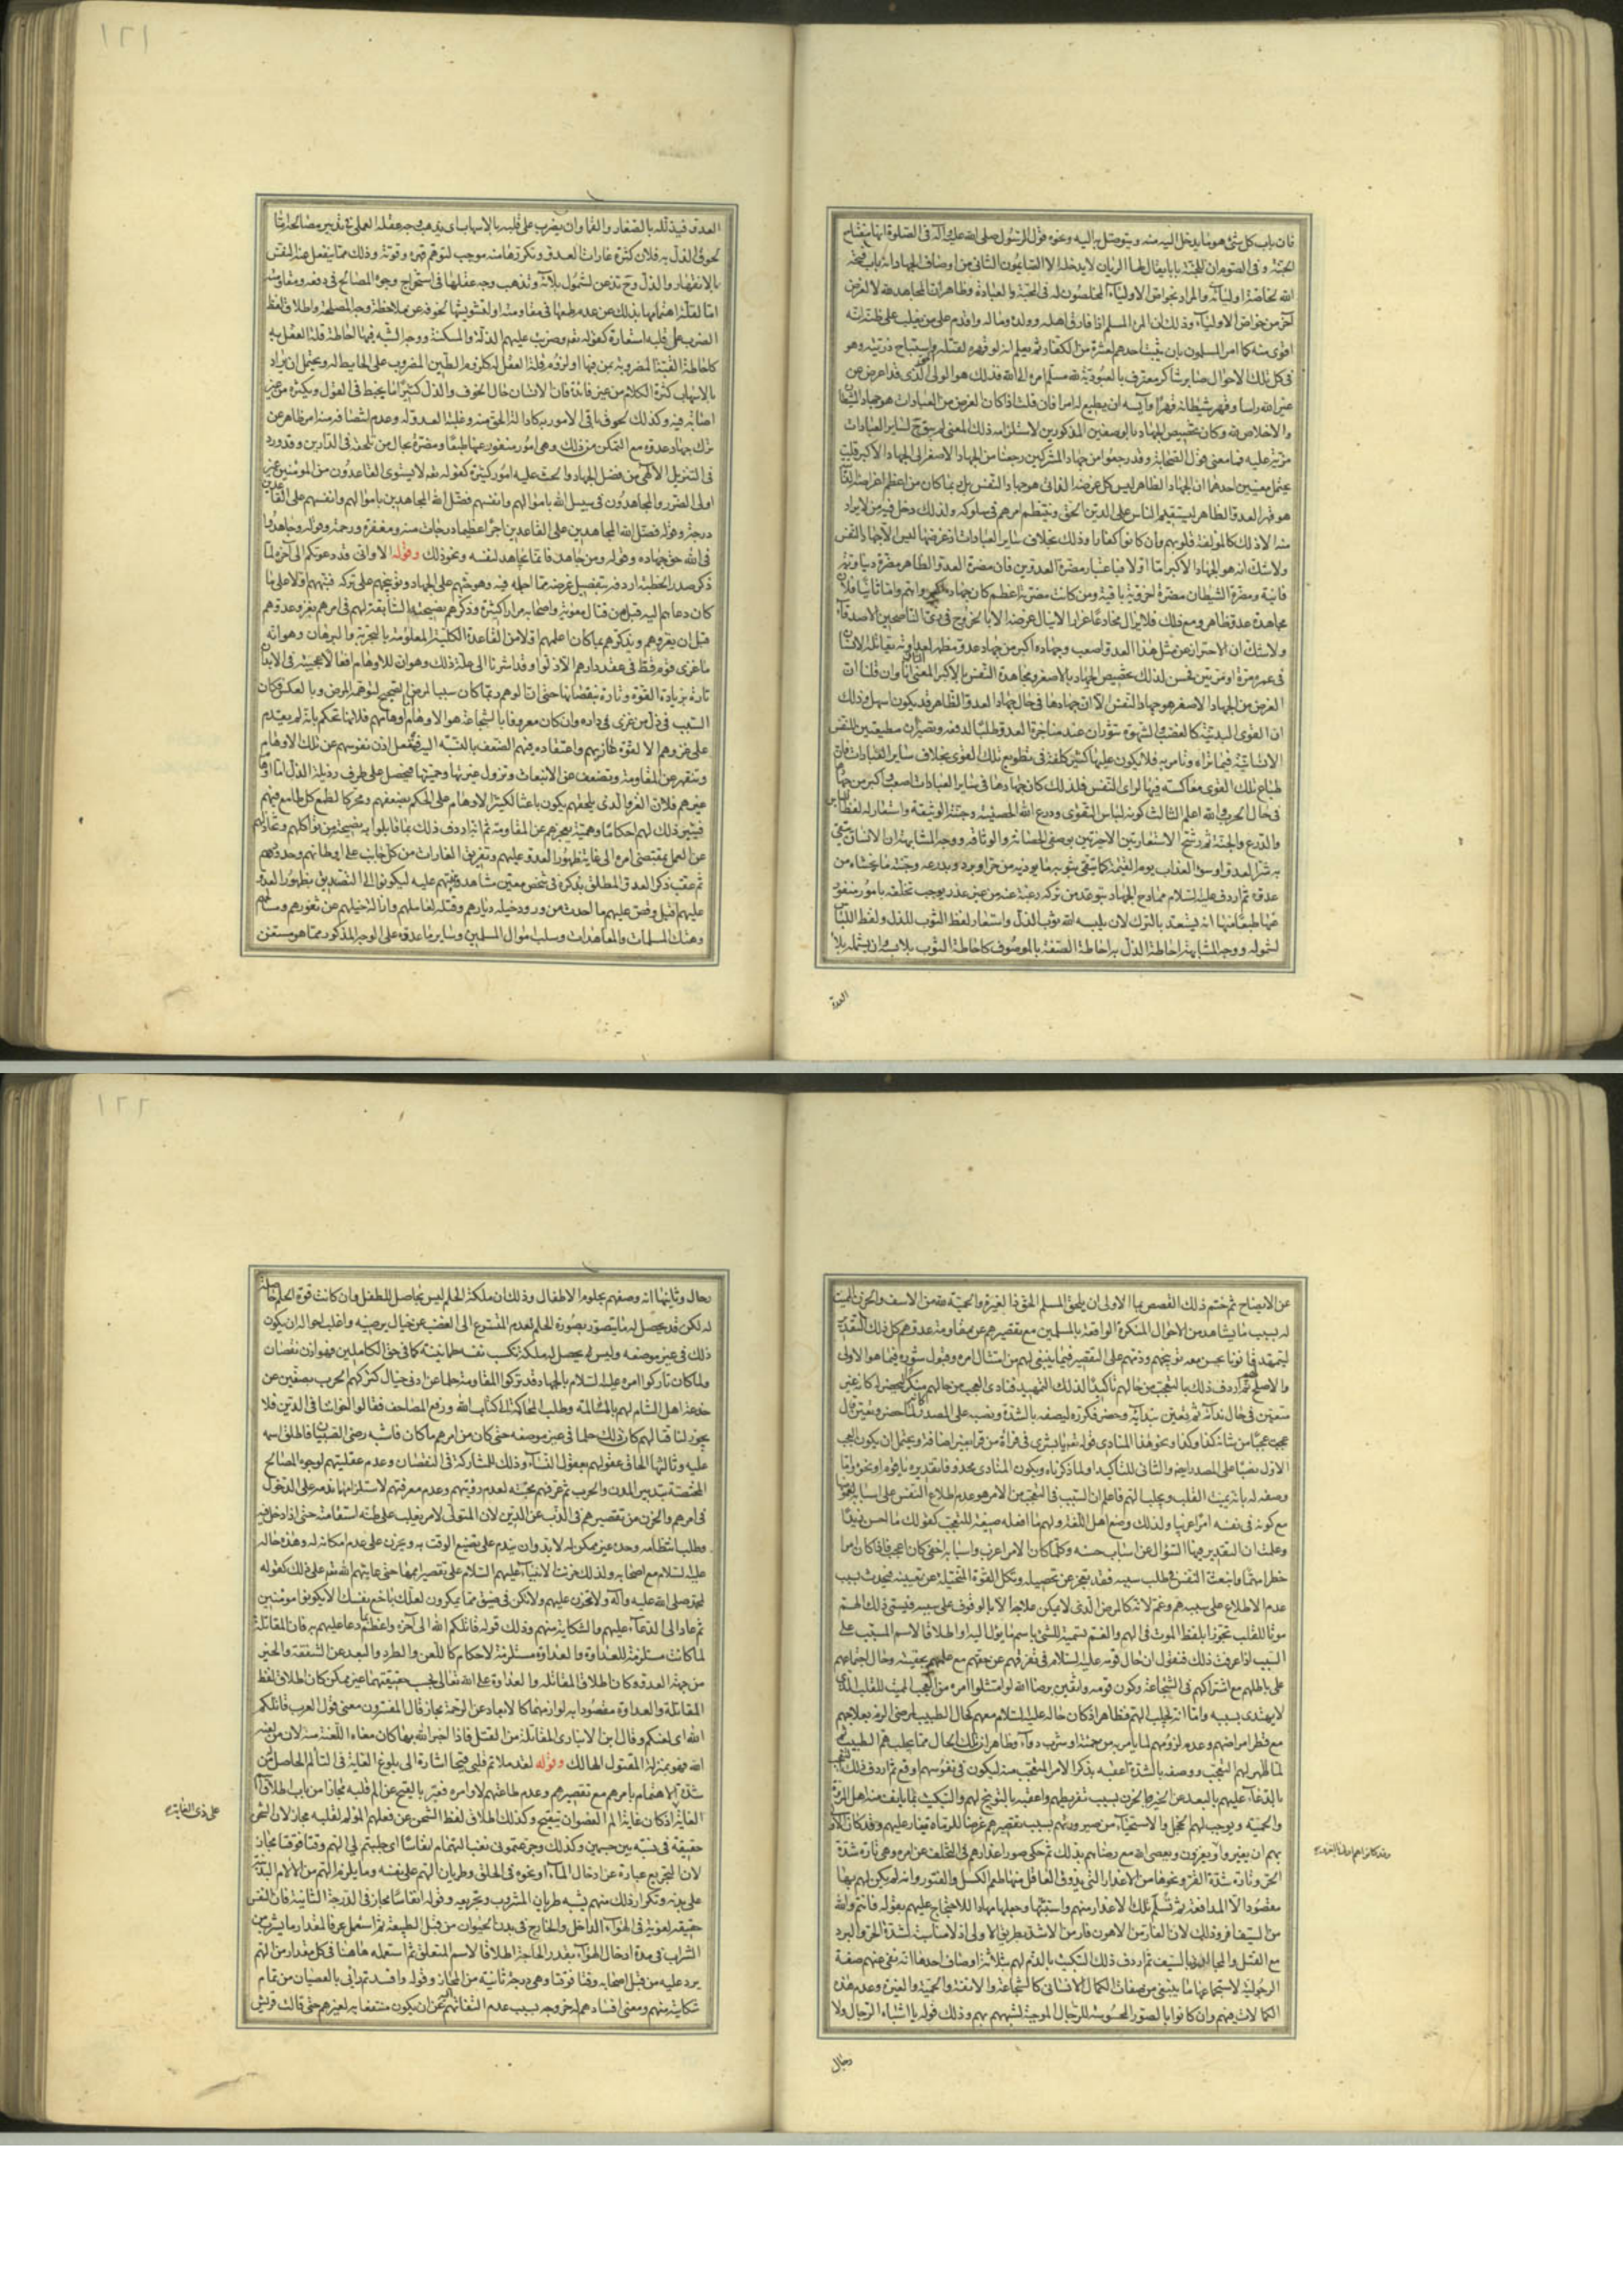 فان باب كل شئ هو ما يدخل اليه منه ويتوصل به اليه ونحوه قول الرسول صلى الله عليه وآله فى الصلوة انها مفتاح
الجنة وفى الصوم ان للجنة بابا يقال لها الريان لا يدخله الا الصايمون الثانى من اوصاف الجهاد انه باب فتحه
الله لخاصة اوليائه والمراد بخواص الاولياء المخلصون له فى المحبة والعبادة وظاهر ان المجاهد لله لا لغرض
آخر من خواص الاولياء وذلك ان المرء المسلم اذا فارق اهله وولده وماله واقدم على من يغلب على ظنه انه
اقوى منه كما امر المسلمون بان يثبت احدهم لعشرة من الكفار ثم يعلم انه لو قهره لقتله واستباح ذريته وهو
فى كل تلك الاحوال صابر شاكر معترف بالعبودية لله مسلم امره الى الله فذلك هو الولى الذى قد اعرض عن
غير الله راسا وقهر شيطانه قهرا وآيسه ان يطيع له امرا فان قلت اذا كان الغرض من العبادات هو جهاد الشيطان
والاخلاص لله وكان تخصيص الجهاد بالوصفين المذكورين لاستلزامه ذلك المعنى لم يبق لساير العبادات
مزية عليه فما معنى قول الصحابة وقد رجعوا من جهاد المشركين رجعنا من الجهاد الاصغر الى الجهاد الاكبر قلت
يحتمل معنيين احدهما ان الجهاد الظاهر ليس كل غرضه الذاتى هو جهاد النفس بل ربما كان من اعظم اغراضه الذاتية
هو قهر العدو الظاهر ليستقيم الناس على الدين الحق وينتظم امرهم فى سلوكه ولذلك دخل فيه من لا يراد
منه الا ذلك كالمؤلفة قلوبهم وان كانوا كفارا وذلك بخلاف ساير العبادات اذ غرضها ليس الا جهاد النفس
ولا شك انه هو الجهاد الاكبر اما اولا فباعتبار مضرة العدوين فان مضرة العدو الظاهر مضرة دنياوية
فانية ومضرة الشيطان مضرة اخروية باقية ومن كانت مضرته اعظم كان جهاده اكبر واهم واما ثانيا فلان
مجاهدة عدو ظاهر ومع ذلك فلا يزال مخادعا غرارا لا ينال غرضه الا بالخروج فى زى الناصحين الاصدقاء
ولا شك ان الاحتراز عن مثل هذا العدو اصعب وجهاده اكبر من جهاد عدو مظهر لعداوته يقاتله الانسان
فى عمره مرة او مرتين فحسن لذلك تخصيص الجهاد بالاصغر ومجاهدة النفس بالاكبر المعنى الثانى وان قلنا ان
الغرض من الجهاد الاصغر هو جهاد النفس الا ان جهادها فى حال جهاد العدو الظاهر قد يكون اسهل وذلك
ان القوى البدنية كالغضب والشهوة تثوران عند مناجزة العدو طلبا لدفعه وتصيران مطيعتين للنفس
الانسانية فيما تراه وتامر به فلا يكون عليها كثير كلفة فى تطويع تلك القوى بخلاف ساير العبادات فان
طباع تلك القوى معاكسة فيها لراى النفس فلذلك كان جهادها فى ساير العبادات اصعب واكبر من جهادها
فى حال الحرب والله اعلم الثالث كونه لباس التقوى ودرع الله الحصينة وجنته الوثيقة واستعار له لفظ اللباس
والدرع والجنة ثم رشح الاستعارتين الاخرتين بوصفى الحصانة والوثاقة ووجه المشابهة ان الانسان يتقى
به شر العدو او سوء العذاب يوم القيمة كما يتقى بثوبه ما يوذيه من حر او برد وبدرعه وجنته ما يخشاه من
عدوه ثم اردف عليه السلام ممادح الجهاد بتوعد من تركه رغبة عنه من غير عذر يوجب تخلفه بامور منفور
عنها طبعا منها انه يستعد بالترك لان يلبسه الله ثوب الذل واستعار لفظ الثوب للذل ولفظ اللباس
لشموله ووجه المشابهة احاطة الذل به احاطة الصفة بالموصوف كاحاطة الثوب بلابسه وان يشمله بلاء
العدو
١٢١
العدو فيذلله بالصغار والقماء وان يضرب على قلبه بالاسهاب اى يذهب وجه عقله العملى فى تدبير مصالحه اما
لحوق الذل به فلان كثرة غارات العدو وتكررها منه موجب لتوهم قهره وقوته وذلك مما ينفعل عنه النفس
بالانقهار والذل وح تذعن لشمول بلائه وتذهب وجه عقلها فى استخراج وجوه المصالح فى دفعه ومقاومته
اما لقلة اهتمامها بذلك عن عدم طمعها فى مقاومته او لتشويشها لخوفه عن ملاحظة وجه المصلحة واطلاق لفظ
الضرب على قلبه استعارة كقوله تعالى وضربت عليهم الذلة والمسكنة ووجه الشبه فيها احاطة قلة العقل به
كاحاطة القبة المضروبة بمن فيها او لزوم قلة العقل له كلزوم الطين المضروب على الحايط له ويحتمل ان يراد
بالاسهاب كثرة الكلام من غير فائدة فان الانسان حال الخوف والذل كثيرا ما يخبط فى القول ويكثر من غير
اصابة فيه وكذلك لحوق باقى الامور به كادالة الحق منه وغلبة العدو له وعدم انتصافه منه امر ظاهر عن
ترك جهاد عدوه مع التمكن من ذلك وهى امور منفور عنها طبعا ومضرة بحال من تلحقه فى الدارين وقد ورد
فى التنزيل الالهى من فضل الجهاد والحث عليه امور كثيرة كقوله تعالى لا يستوى القاعدون من المؤمنين غير
اولى الضرر والمجاهدون فى سبيل الله باموالهم وانفسهم فضل الله المجاهدين باموالهم وانفسهم على القاعدين
درجة وقوله فضل الله المجاهدين على القاعدين اجرا عظيما درجات منه ومغفرة ورحمة وقوله وجاهدوا
فى الله حق جهاده وقوله ومن جاهد فانما يجاهد لنفسه ونحو ذلك وقوله الا وانى قد دعوتكم الى آخره لما
ذكر صدر الخطبة اردفه بتفصيل غرضه مما اجمله فيه وهو حثهم على الجهاد وتوبيخهم على تركه فنبههم اولا على ما
كان دعاهم اليه قبل من قتال معوية واصحابه مرارا كثيرة وذكرهم نصيحته السابقة لهم فى امرهم بغزو عدوهم
قبل ان يغزوهم وتذكيرهم بما كان اعلمهم اولا من القاعدة الكلية المعلومة بالتجربة والبرهان وهو انه
ما غزى قوم قط فى عقر دارهم الا ذلوا وقد اشرنا الى علة ذلك وهو ان للاوهام افعالا عجيبة فى الابدان
تارة بزيادة القوة وتارة بنقصانها حتى ان الوهم ربما كان سببا لمرض الصحيح لتوهمه المرض وبالعكس فكان
السبب فى ذل من غزى فى داره وان كان معروفا بالشجاعة هو الاوهام اوهامهم فلانها تحكم بانه لم يقدم
على غزوهم الا لقوة غازيهم واعتقاده فيهم الضعف بالنسبة اليه فتنفعل اذن نفوسهم عن تلك الاوهام
وتنقهر عن المقاومة وتضعف عن الانبعاث وتزول غيرتها وحميتها فيحصل على طرف رذيلة الذل اما اوهام
غيرهم فلان الغزو الذى يلحقهم يكون باعثا لكثير الاوهام على الحكم بضعفهم ومحركا لطمع كل طامع فيهم
فيثير ذلك لهم احكاما وهمية بعجزهم عن المقاومة ثم انه اردف ذلك بما قابلوا به نصيحته من تواكلهم وتخاذلهم
عن العمل بمقتضى امره الى غاية ظهور العدو عليهم وتفريق الغارات من كل جانب على اوطانهم وحدودهم
ثم عقب ذكر العدو المطلق بذكره فى شخص معين مشاهد ونبههم عليه ليكونوا الى التصديق بظهور العدو
عليهم اقبل وقص عليهم ما احدث من ورود خيله ديارهم وقتله لعاملهم وازالة خيلهم عن ثغورهم ومسالحهم
وهتك المسلمات والمعاهدات وسلب اموال المسلمين وساير ما عدوه على الوجه المذكور مما هو مستغن
عن الايضاح ثم ختم ذلك القصص بما الاولى ان يلحق المسلم الحق ذا الغيرة والحمية لله من الاسف والحزن المميت
له بسبب ما يشاهد من الاحوال المنكرة الواقعة بالمسلمين مع تقصيرهم عن مقاومة عدوهم كل ذلك التقدير
ليتمهد قانونا يحسن معه توبيخهم وذمهم على التقصير فيما ينبغى لهم من امتثال امره وقبول مشوره فيما هو الاولى
والاصلح ثم اردف ذلك بالتعجب من حالهم تأكيدا لذلك التمهيد فنادى العجب من حالهم منكرا ليحضر له كانه غير
متعين فى حال ندائه ثم تعين بندائه وحضر فكرره ليصفه بالشدة ونصب على المصدر كانه لما حضر وتعين قال
عجبت عجبا من شانه كذا وكذا ونحو هذا المنادى قوله تعالى يا بشرى فى قراءة من قرأ بغير اضافة ويحتمل ان يكون العجب
الاول نصبا على المصدر ايضا والثانى للتاكيد او لما ذكرناه ويكون المنادى محذوفا تقديره يا قوم او نحوه واما
وصفه له بانه يميت القلب ويجلب الهم فاعلم ان السبب فى التعجب من الامر هو عدم اطلاع النفس على اسبابه لغموضها
مع كونه فى نفسه امرا غريبا ولذلك وضع اهل اللغة قولهم ما افعله صيغة للتعجب كقولك ما احسن زيدا
وعلمت ان التقدير فيها السؤال عن اسباب حسنه وكلما كان الامر اغرب واسبابه اخفى كان اعجب فاذا كان امرا
خطرا مهما وانبعثت النفس فى طلب سببه فقد تعجز عن تحصيله وتكل القوة المتخيلة عن تعيينه فيحدث بسبب
عدم الاطلاع على سببه هم وغم لا شكا المرض الذى لا يمكن علاجه الا بالوقوف على سببه فيسمى ذلك الهم
موتا للقلب تجوزا بلفظ الموت فى الهم والغم تسمية للشئ باسم ما يؤل اليه او اطلاقا لاسم المسبب على
السبب اذا عرفت ذلك فنقول ان حال قومه عليه السلام فى تفرقهم عن حقهم مع علمهم بحقيته وحال اجتماع خصومهم
على باطلهم مع اشتراكهم فى الشجاعة وكون قومه واثقين برضا الله لو امتثلوا امره من العجب المميت للقلب الذى
لا يهتدى لسببه واما انه يجلب الهم فظاهر اذ كان حاله عليه السلام معهم كحال الطبيب لمرضى الزم بعلاجهم
مع خطر امراضهم وعدم لزومهم لما يامرهم به من حمية او شرب دواء وظاهر ان تلك الحال مما يجلب هم الطبيب
لما اظهر لهم التعجب ووصفه بالشدة اعقبه بذكر الامر المتعجب منه ليكون فى نفوسهم اوقع ثم اردف ذلك
بالدعاء عليهم بالبعد عن الخير وبالحزن بسبب تفريطهم واعقبه بالتوبيخ لهم والتبكيت بما يانف منه اهل المروة
والحمية ويوجب لهم الخجل والاستحياء من صيرورتهم بسبب تقصيرهم غرضا للرماة يغار عليهم وقد كان الاولى
بهم ان يغيروا ويغزون ويعصى الله مع رضاهم بذلك ثم حكى صور اعذارهم فى التخلف عن امره وهى تارة شدة
الحر وتارة شدة القر ونحوها من الاعذار التى يذوق العاقل منها طعم الكسل والفتور وانه لم يكن لهم بها
مقصود الا المدافعة ثم تسلم تلك الاعذار منهم واستثبتها وجعلها مهادا للاحتجاج عليهم بقوله فانتم والله
من السيف افر وذلك لان الفار من الاهون فار من الاشد بطريق الاولى اذ لا مناسبة لشدة الحر والبرد
مع القتل والمجالدة بالسيف ثم اردف ذلك التبكيت بالذم لهم بثلاثة اوصاف احدها انه نفى عنهم صفة
الرجولية لاستجماعها ما ينبغى من صفات الكمال الانسانى كالشجاعة والانفة والحمية والغيرة وعدم هذه
الكمالات فيهم وان كانوا بالصور المحسوسة للرجال الموجبة لشبههم بهم وذلك قوله يا اشباه الرجال ولا
رجال
١٢٢
رجال وثانيها انه وصفهم بحلوم الاطفال وذلك ان ملكة الحلم ليس بحاصل للطفل وان كانت قوة الحلم حاصلة
له لكن قد يحصل له ما يتصور بصورة الحلم لعدم التسرع الى الغضب عن خيال يرضيه واغلب احواله ان يكون
ذلك فى غير موضعه وليس له يحصل له ملكة تكسب نفسه طمانينة كما فى حق الكاملين فهو اذن نقصان
ولما كان تاركوا امره عليه السلام بالجهاد قد تركوا المقاومة حلما عن ادنى خيال كتركهم الحرب بصفين عن
خدعة اهل الشام لهم بالمسالمة وطلب المحاكمة الى كتاب الله ورفع المصاحف فقالوا اخواننا فى الدين فلا
يجوز لنا قتالهم كان ذلك حلما فى غير موضعه حتى كان من امرهم ما كان فاشبه رضى الصبيان فاطلق اسمه
عليه وثالثها الحاق عقولهم بعقول النساء وذلك للمشاركة فى النقصان وعدم عقليتهم لوجوه المصالح
المختصة بتدبير المدن والحرب ثم عرفهم محبته لعدم رؤيتهم وعدم معرفتهم لاستلزامها ندمه على الدخول
فى امرهم والحزن من تقصيرهم فى الذب عن الدين لان المتولى لامر يغلب على ظنه استقامته حتى اذا دخل فيه
وطلب انتظامه وجده غير ممكن له لابد وان يندم على تضييع الوقت به ويحزن على عدم امكانه له وهذه حاله
عليه السلام مع اصحابه ولذلك حزنت الانبياء عليهم السلام على تقصير اممها حتى عاتبهم الله تعالى على ذلك كقوله
لمحمد صلى الله عليه وآله ولا تحزن عليهم ولا تكن فى ضيق مما يمكرون لعلك باخع نفسك الا يكونوا مؤمنين
ثم عاد الى الدعاء عليهم والشكاية منهم وذلك قوله قاتلكم الله الى آخره واعظم ما دعا عليهم به فان المقاتلة
لما كانت مستلزمة للعداوة والعداوة مستلزمة لاحكام كاللعن والطرد والبعد عن الشفقة والخير
من جهة العدو وكان اطلاق المقاتلة والعداوة على الله تعالى بحسب حقيقتهما غير ممكن كان اطلاق لفظ
المقاتلة والعداوة مقصودا به لوازمهما كالابعاد عن الرحمة مجازا قال المفسرون معنى قول العرب قاتلكم
الله اى لعنكم وقال ابن الانبارى المقاتلة من القتل فاذا اخبر الله بها كان معناه اللعنة منه لان من لعنه
الله فهو بمنزلة المقتول الهالك وقوله لقد ملاتم قلبى قيحا اشارة الى بلوغ الغاية فى التألم الحاصل له من
شدة الاهتمام بامرهم مع تقصيرهم وعدم طاعتهم لاوامره فعبر بالقيح عن الم قلبه مجازا من باب اطلاق اسم
الغاية اذ كان غاية الم العضو ان يتقيح وكذلك اطلاق لفظ الشحن عن فعلهم المؤلم لقلبه مجاز لان الشحن
حقيقة فى نسبة بين جسمين وكذلك وجرعتمونى نغب التهمام انفاسا اى جلبتم لى الهم وقتا فوقتا مجاز
لان التجرع عبارة عن ادخال الماء او نحوه فى الحلق وطريان الهم على نفسه وما يلزم الهم من الالام البدنية
على بدنه وتكرار ذلك منهم يشبه طريان المشروب وتجريعه وقوله انفاسا مجاز فى الدرجة الثانية فان النفس
حقيقة لغوية فى الهواء الداخل والخارج فى بدن الحيوان من قبل الطبيعة ثم استعمل عرفا لمقدار ما يشرب من
الشراب فى مدة ادخال الهواء بقدر الحاجة اطلاقا لاسم المتعلق ثم استعمله هاهنا فى كل مقدار من الهم
يرد عليه من قبل اصحابه وقتا فوقتا وهى درجة ثانية من المجاز وقوله وافسدتم رأيى بالعصيان من تمام
شكايته منهم ومعنى افسادهم له خروجه بسبب عدم التفاتهم اليه عن ان يكون منتفعا به لغيرهم حتى قالت قريش
على ذى الغاية